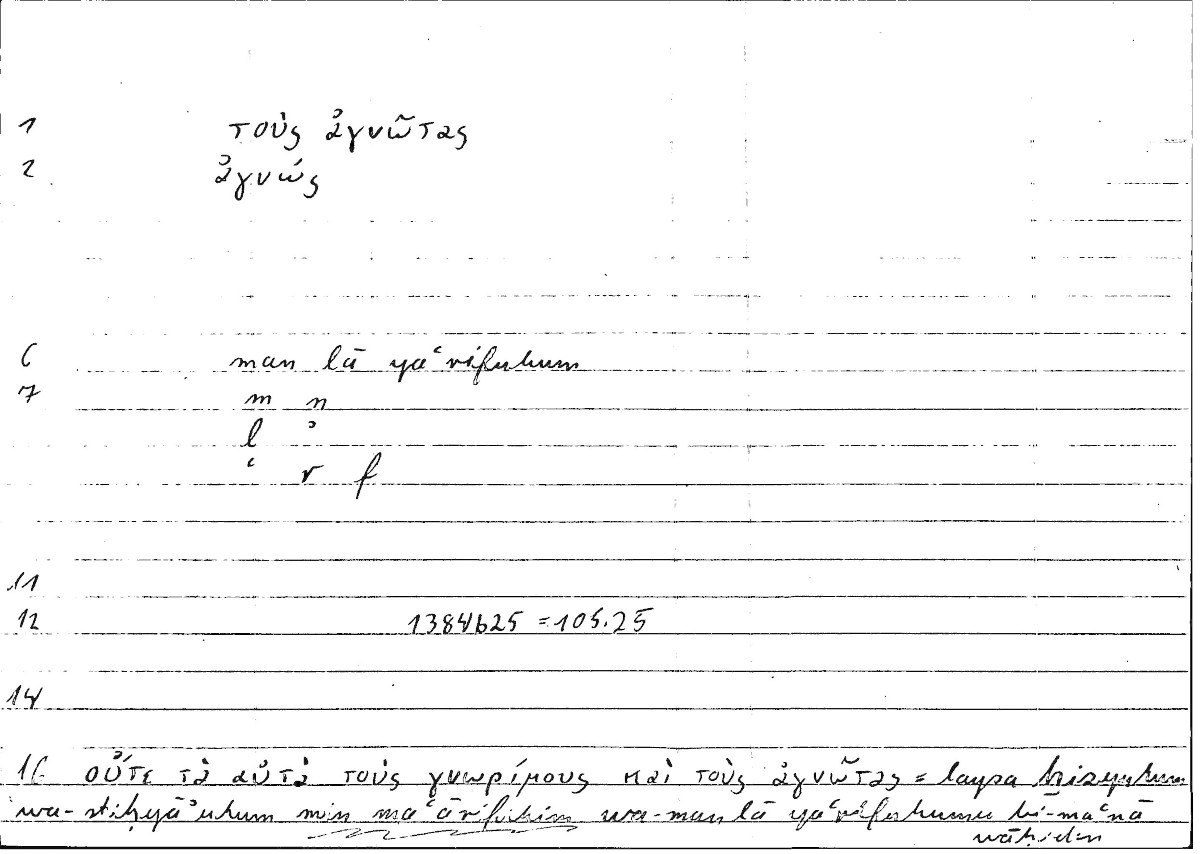 1 τοὺς ἀγνῶτας
2 ἀγνώς
6 man lā yaʿrifukum
7 m n
l ʾ
ʿ r f
11
12 1384b25 = 105.25
14
16 οὔτε τὰ αὐτὰ τοὺς γνωρίμους καὶ τοὺς ἀγνῶτας = laysa
wa-stiḥyāʾukum min maʿārifikim wa-man lā yaʿrifukumu bi-maʿnā
wāḥidin